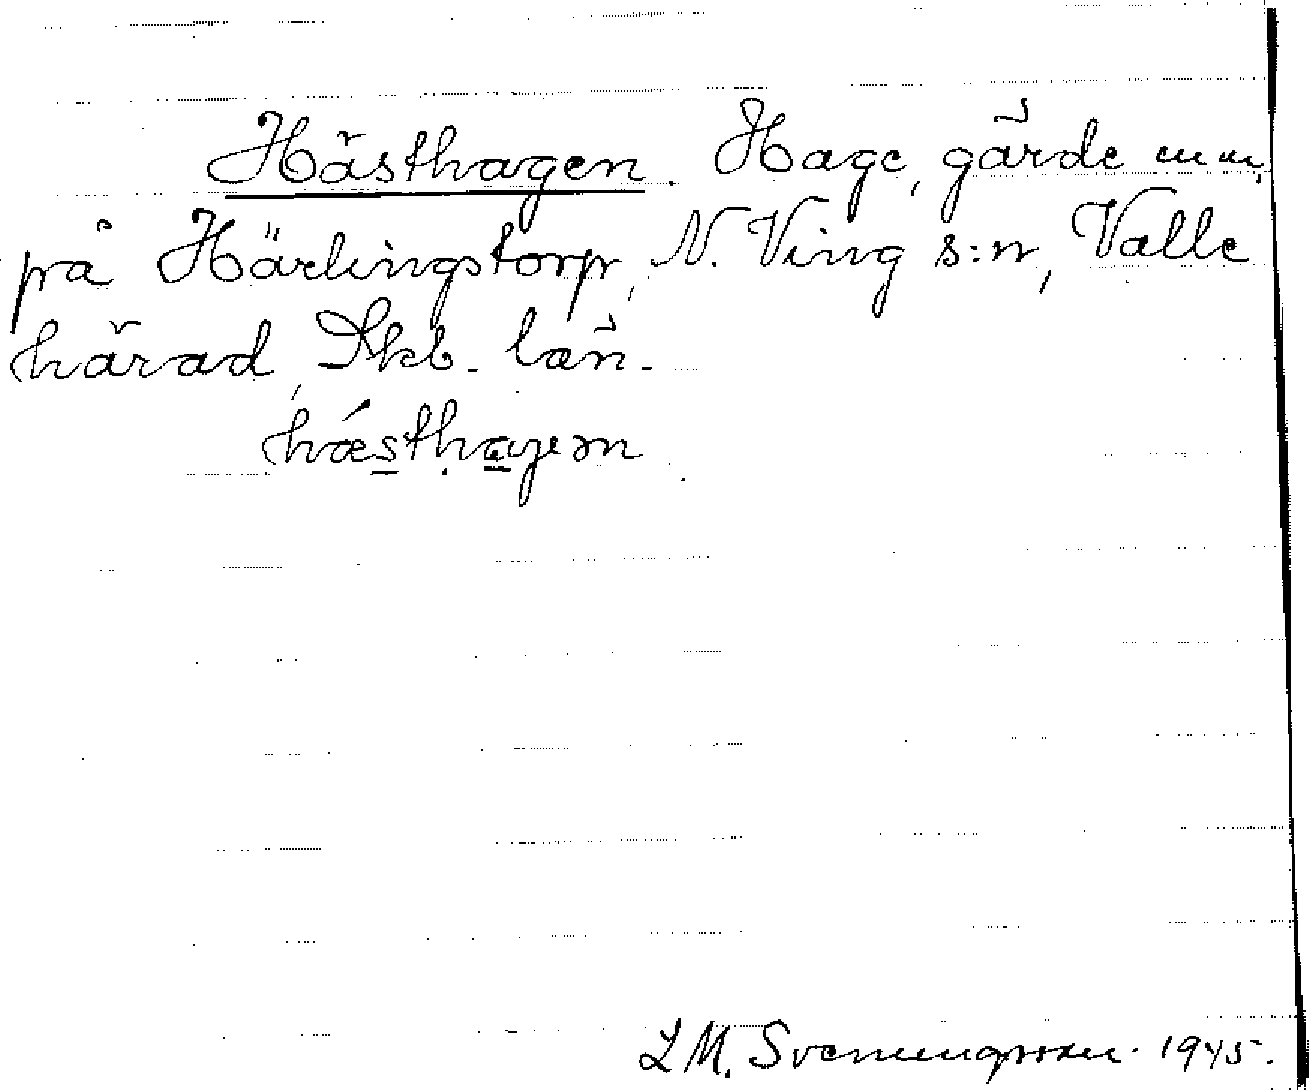 Hästhagen. Hage, gärde m m,
på Härlingstorp, N. Ving s:n, Valle
härad, Skb. län.
hǽsthagen
L M. Svenungsson 1945.